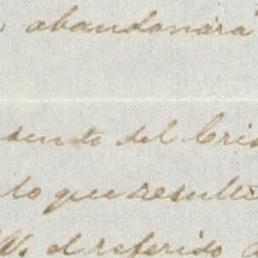 abandonara
del Cris
lo que resulte
el referido